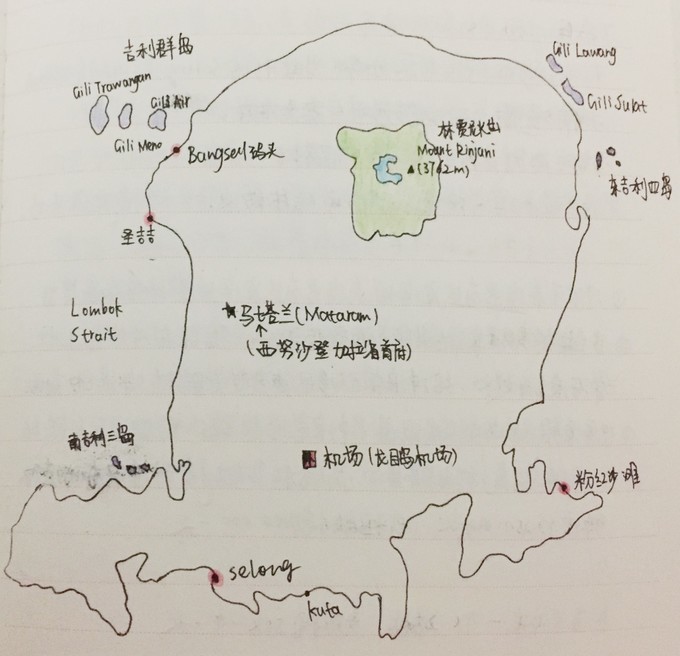 吉利群岛
Gili Trawangan
Gili Air
Gili Meno
Bangsal码头
圣吉吉
Gili Lawang
Gili Sulat
林贾尼火山
Mount Rinjani
▲(3762m)
东吉利四岛
Lombok
Strait
★马塔兰(Mataram)
(西努沙登加拉省首府)
南吉利三岛
机场(龙目岛机场)
粉红沙滩
selong
kuta